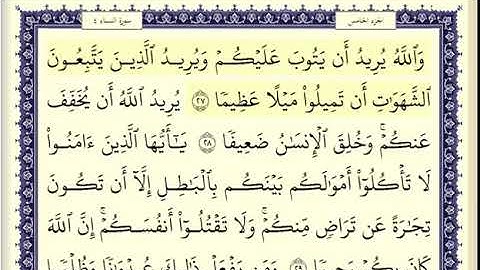 الجزء الخامس
سورة النساء ٤
وَٱللَّهُ يُرِيدُ أَن يَتُوبَ عَلَيْكُمْ وَيُرِيدُ ٱلَّذِينَ يَتَّبِعُونَ
ٱلشَّهَوَٰتِ أَن تَمِيلُوا۟ مَيْلًا عَظِيمًا ٢٧ يُرِيدُ ٱللَّهُ أَن يُخَفِّفَ
عَنكُمْ ۚ وَخُلِقَ ٱلْإِنسَٰنُ ضَعِيفًا ٢٨ يَٰٓأَيُّهَا ٱلَّذِينَ ءَامَنُوا۟
لَا تَأْكُلُوٓا۟ أَمْوَٰلَكُم بَيْنَكُم بِٱلْبَٰطِلِ إِلَّآ أَن تَكُونَ
تِجَٰرَةً عَن تَرَاضٍ مِّنكُمْ ۚ وَلَا تَقْتُلُوٓا۟ أَنفُسَكُمْ ۚ إِنَّ ٱللَّهَ
كَانَ بِكُمْ رَحِيمًا ٢٩ وَمَن يَفْعَلْ ذَٰلِكَ عُدْوَٰنًا وَظُلْمًا